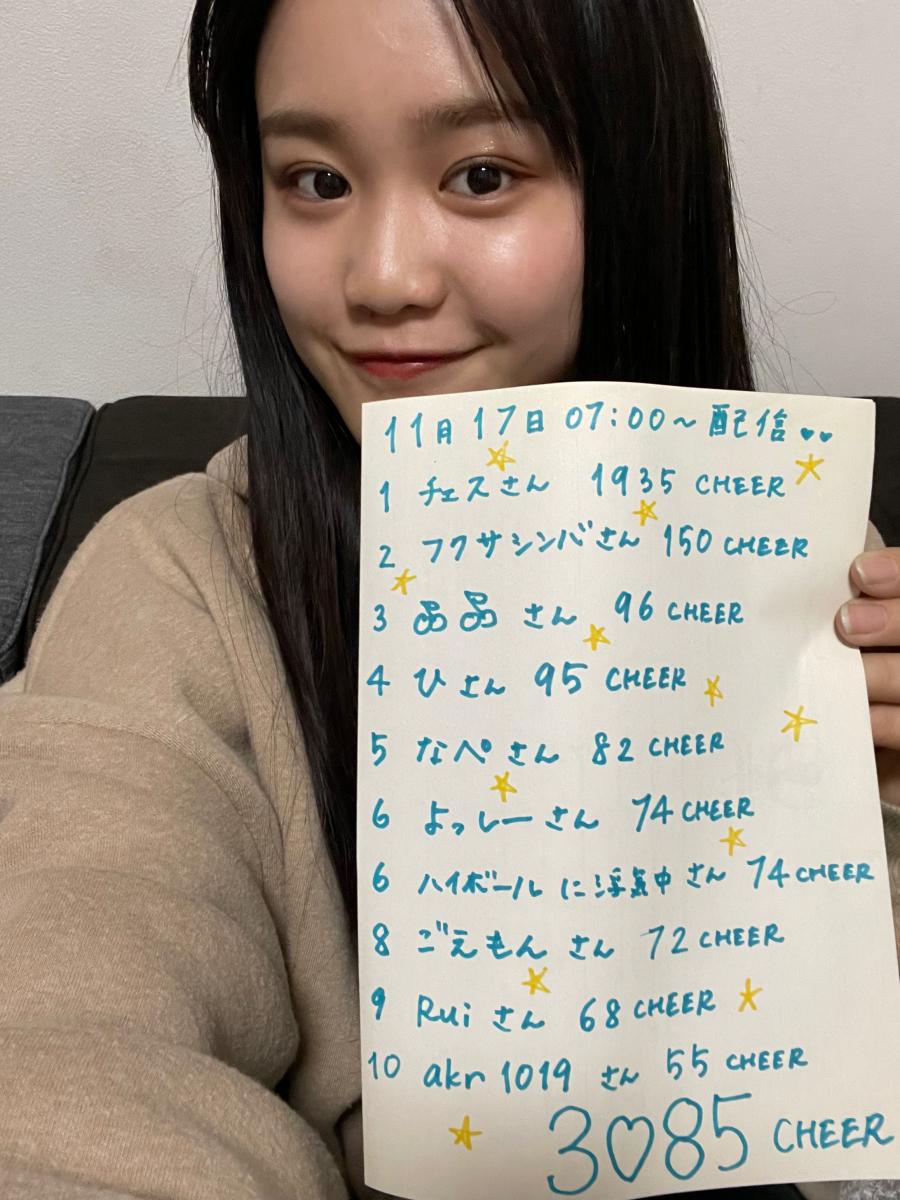 11月17日 07:00~配信♥♥
1 チェスさん 1935 CHEER
2 フクサシンバさん 150 CHEER
3 さん 96 CHEER
4 ひさん 95 CHEER
5 なぺさん 82 CHEER
6 よっしーさん 74 CHEER
6 ハイボールに浮気中さん 74 CHEER
8 ごえもんさん 72 CHEER
9 Ruiさん 68 CHEER
10 akr1019さん 55 CHEER
3♡85 CHEER